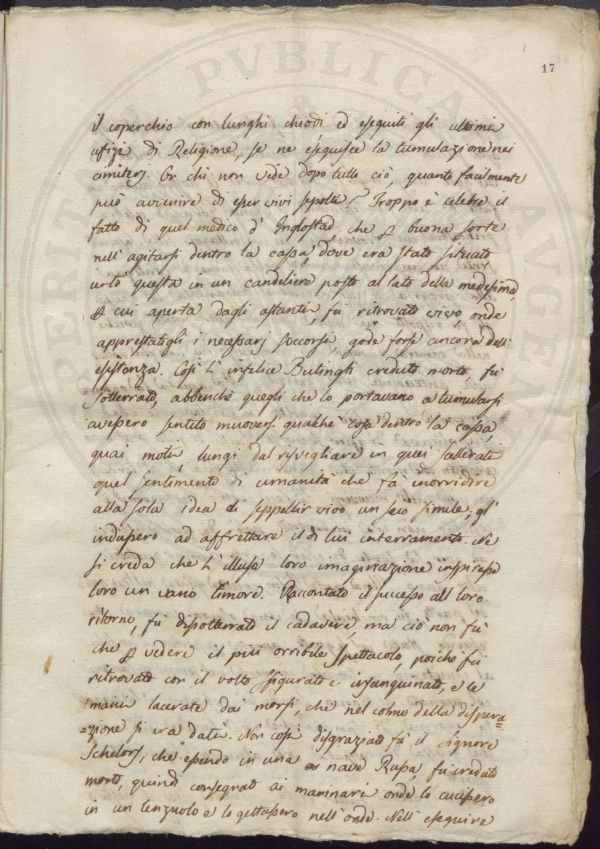 17
il coperchio con lunghi chiodi ed eseguiti gli ultimi
ufizi di Religione, se ne eseguisce la tumulazione nei
cimiterj. Or chi non vede dopo tutto ciò quanto facilmente
può avvenire di esser vivi sepolti? Troppo è celebre il
fatto di quel medico d' Inglostad, che p buona sorte
nell' agitarsi dentro la cassa, dove era stato situato
urtò questa in un candeliere posto al lato della medesima,
p cui aperta dagli astanti, fù ritrovato vivo, onde
apprestatigli i necessarj soccorsi, gode forse ancora dell'
esistenza. Così l' infelice Bulingh creduto morto, fù
sotterrato, abbenchè quegli che lo portavano a tumularsi
avessero sentito muoversi qualche cosa dentro la cassa,
quai moti lungi dal risvegliare in quei scellerati
quel sentimento di umanità che fà inorridire
alla sola idea di seppellir vivo un suo simile, gl'
indussero ad affrettare il di lui interramento. Nè
si creda che l' illusa loro imaginazione inspirasse
loro un vano timore. Raccontato il successo al loro
ritorno, fù disotterrato il cadavere, ma ciò non fù
che p vedere il più orribile spettacolo, poichè fù
ritrovato con il volto sfigurato e insanguinato, e le
mani lacerate dai morsi, che nel colmo della dispera=
=zione si era dati. Non così disgraziato fù il Signore
Schelors, che essendo in una nave Russa, fù creduto
morto, quindi consegnato ai marinari onde lo cucissero
in un lenzuolo e lo gettassero nell' onde. Nell' eseguire